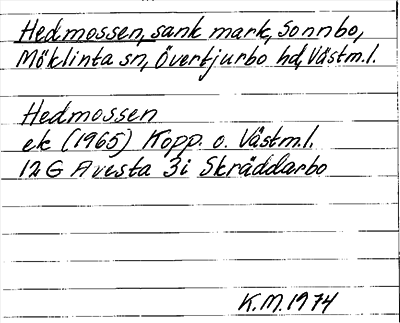 Hedmossen, sank mark, Sonnbo,
Möklinta sn, Övertjurbo hd, Västm.l.
Hedmossen
ek (1965) Kopp. o. Västm.l.
12 G Avesta 3i Skräddarbo
K.M. 1974